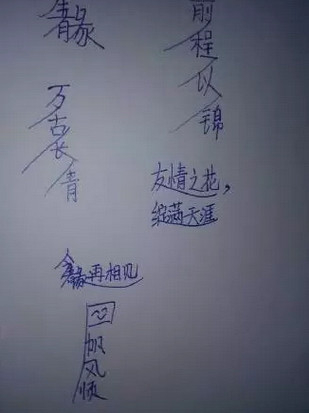 前程以锦
万古长青
友情之花，
绽满天涯
再相见
帆风顺